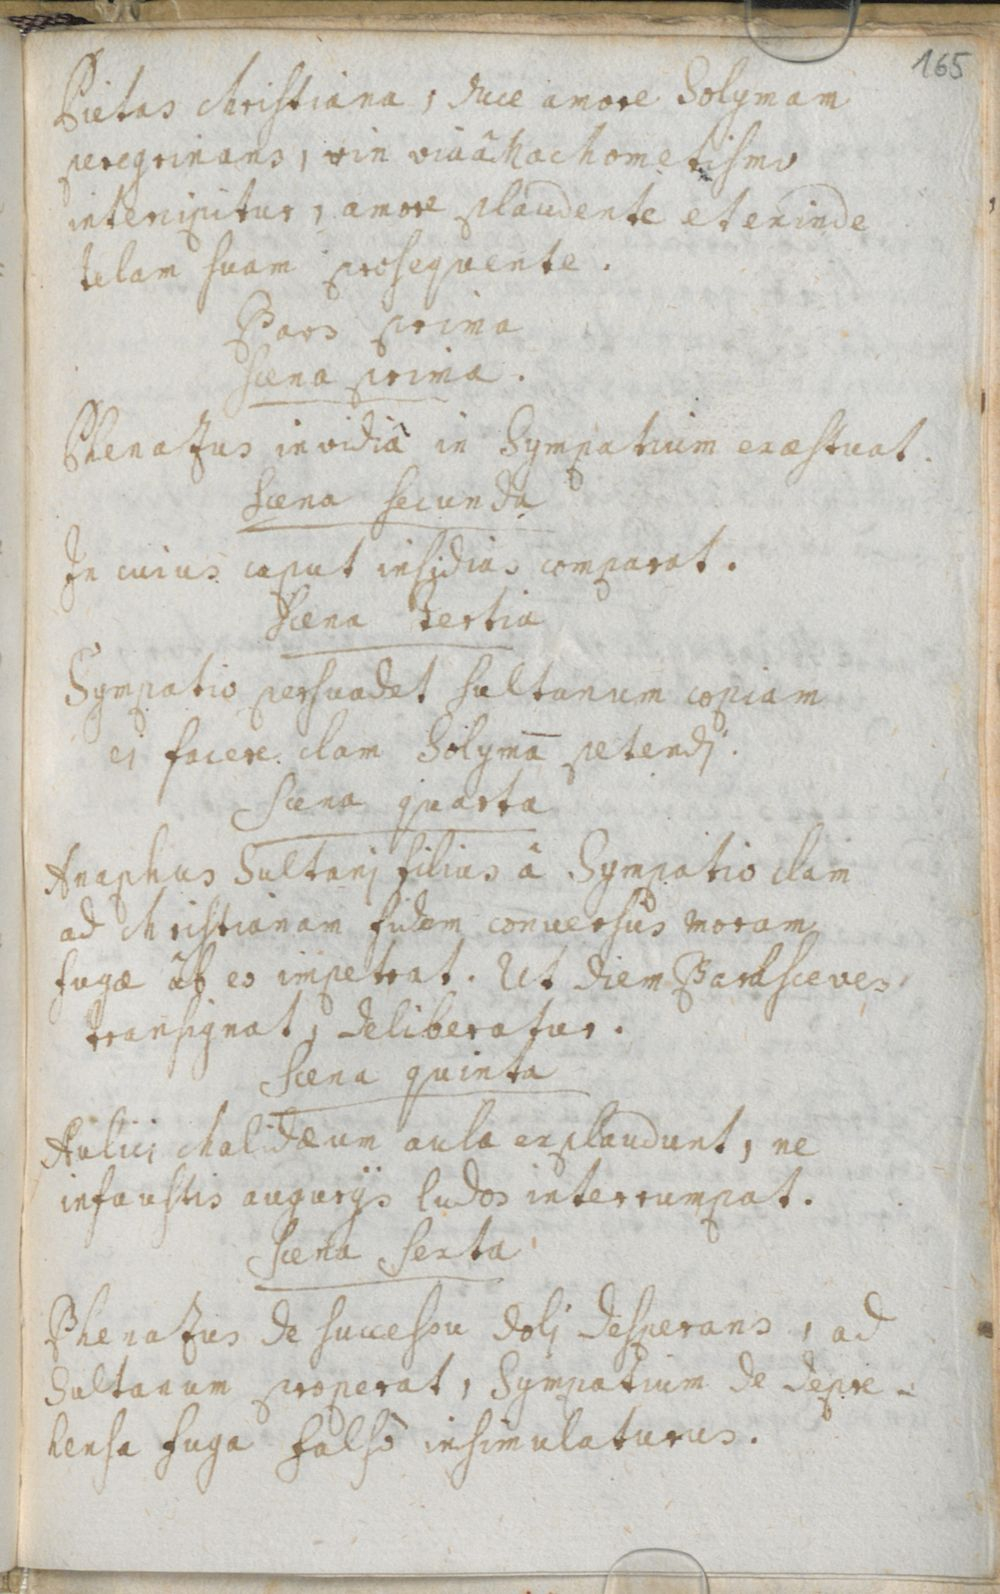 165
Pietas christiana, duce amore Solymam
peregrinans, in via â Machometismo
intericitur, amore plaudente et exinde
telam suam prosequente.
Pars prima
Scena prima.
Phenazus invidiâ in Sympatium exæstuat.
Scena secunda
In cuius caput insidias comparat.
Scena tertia
Sympatio persuadet sultanum copiam
ei facere clam Solymā petendj.
Scena quarta
Anaphus Sultanj filius â Sympatio clam
ad christianam fidem conuersus moram
fugæ âb eo impetrat. Ut diem Parasceves
transignat, deliberatur.
Scena quinta
Aulicj chalidæum aula explaudunt, ne
infaustis augurijs ludos interrumpat.
Scena sexta
Phenazus de successu dolj desperans, ad
Sultanum properat, Sympatium de depre-
hensa fuga falsò insimulaturus.